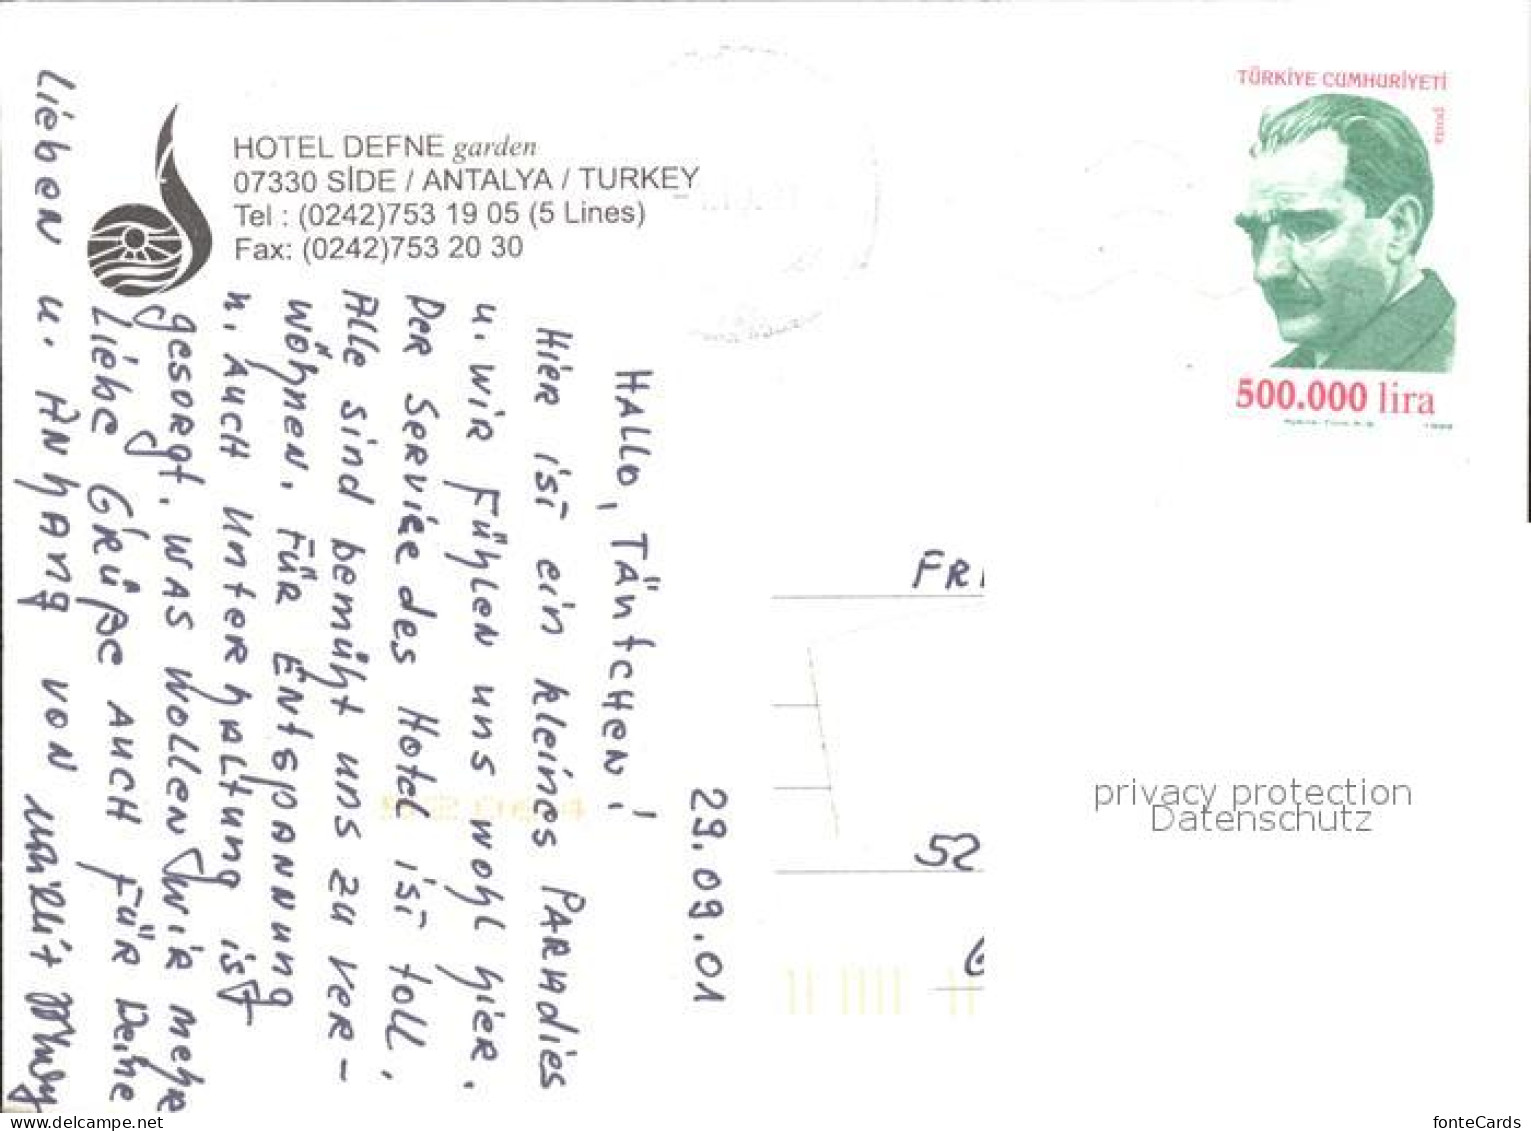 HOTEL DEFNE garden
07330 SİDE / ANTALYA / TURKEY
Tel : (0242)753 19 05 (5 Lines)
Fax: (0242)753 20 30
TÜRKİYE CUMHURİYETİ
posta
500.000 lira
29.09.01
HALLO, TÄNTCHEN!
HiER iST ein kleines PARADiES
u. WiR FÜHLEN uns wohl hier.
DER SERViCE des Hotel iST toll.
Alle sind bemüht uns zu VER-
wöhnen. FÜR ENTSPANNUNG
u. AUCH UNTERHALTUNG iST
gesorgt. WAS WOLLEN WiR mehr
Liebe GRÜßE AUCH FÜR Deine
Lieben u. ANHANG VON
FR
52
privacy protection
Datenschutz
www.delcampe.net
fonteCards